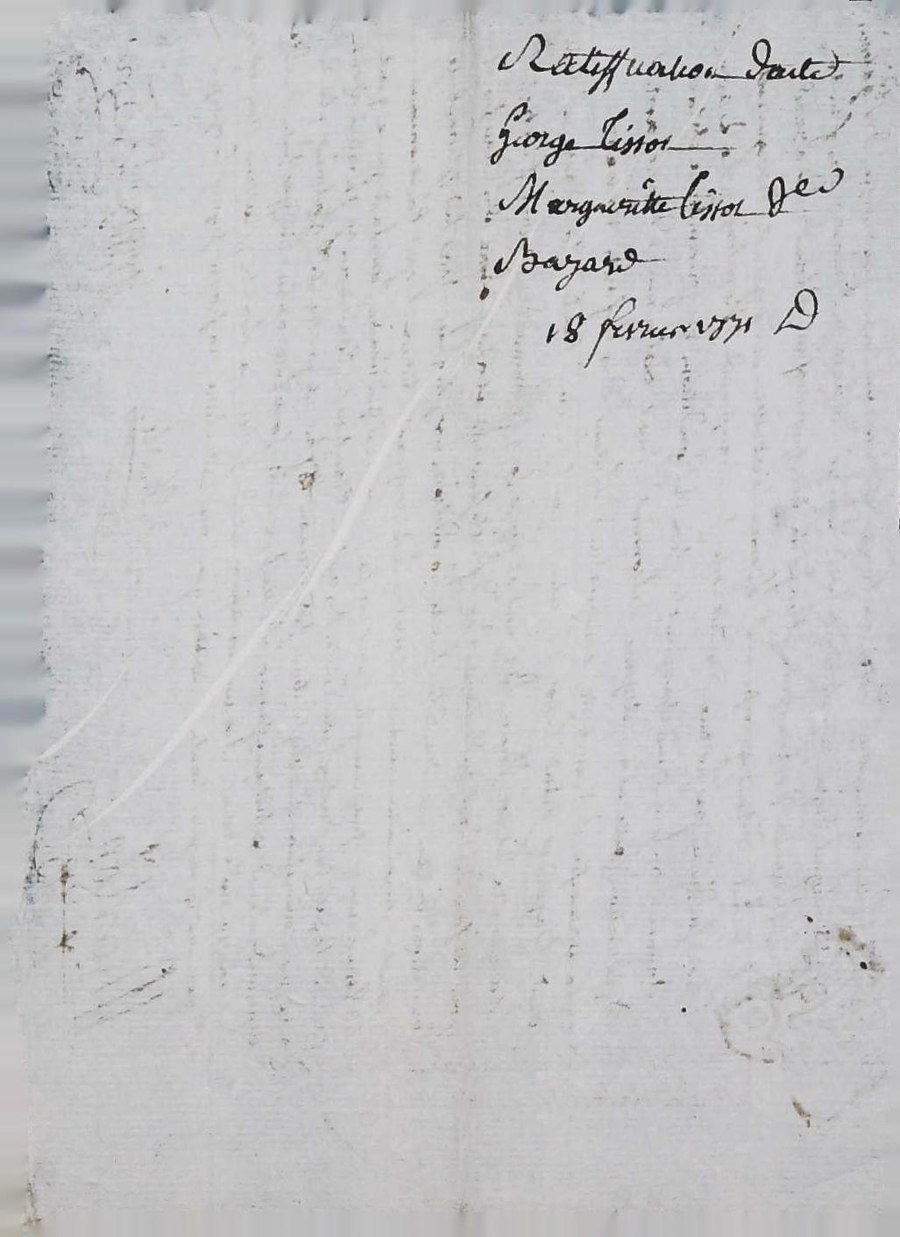 Ratiffication dacte
George Tissot
Margueritte Tissot
Bazard
18 fevrier 1771